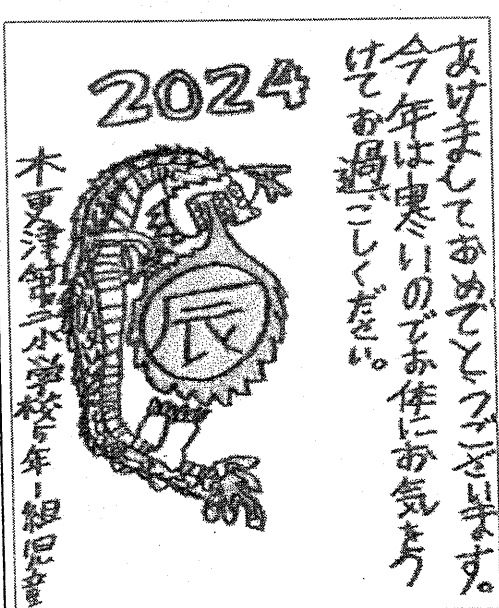 あけましておめでとうございます。
今年は寒いのでお体にお気をつ
けてお過ごしください。
2024
辰
木更津第二小学校五年一組